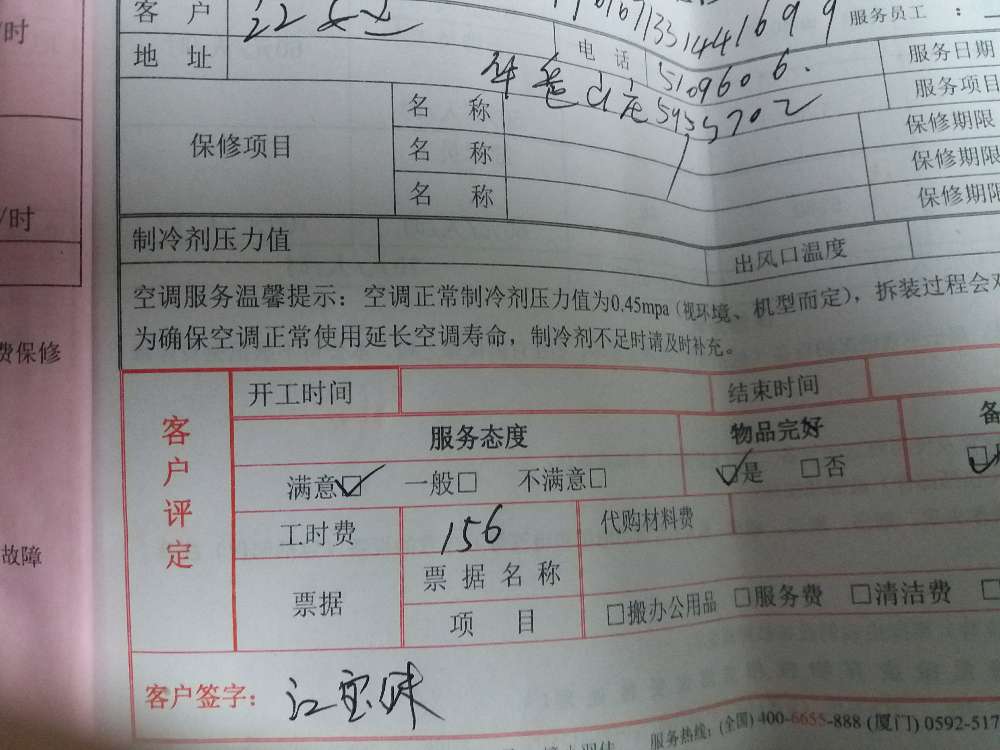 /时
客 户
服务员工 ：
地 址
电 话
5109606.
服务日期
服务项目
5935702
保修项目
名 称
保修期限
名 称
保修期限
名 称
保修期限
/时
制冷剂压力值
出风口温度
空调服务温馨提示：空调正常制冷剂压力值为0.45mpa（视环境、机型而定），拆装过程会
为确保空调正常使用延长空调寿命，制冷剂不足时请及时补充。
费保修
客户评定
开工时间
结束时间
服务态度
物品完好
备
满意☑ 一般□ 不满意□
☑是 □否
工时费
156
代购材料费
故障
票据
票 据 名 称
项 目
□搬办公用品 □服务费 □清洁费
客户签字：
江宝妹
服务热线：(全国) 400-6655-888 (厦门) 0592-517